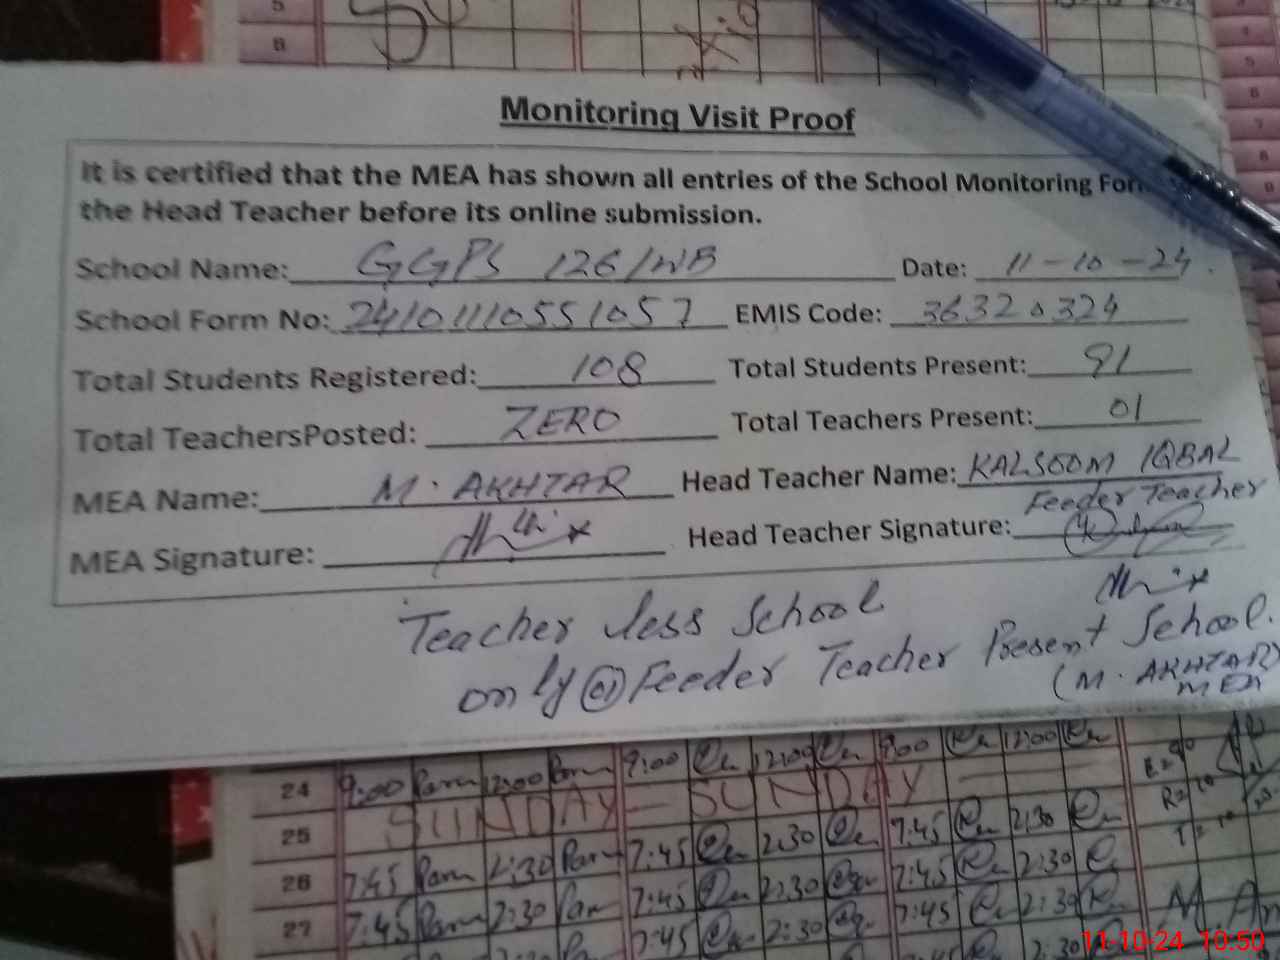 5
6
Monitoring Visit Proof
It is certified that the MEA has shown all entries of the School Monitoring
the Head Teacher before its online submission.
School Name: GGPS 126/WB Date: 11-10-24.
School Form No: 2410111055 1057 EMIS Code: 36320324
Total Students Registered: 108 Total Students Present: 91
Total TeachersPosted: ZERO Total Teachers Present: 01
MEA Name: M. AKHTAR Head Teacher Name: KALSOOM IQBAL
Feeder Teacher
MEA Signature: Head Teacher Signature:
Teacher less School
only 01 Feeder Teacher Present School.
(M. AKHTAR)
MEA
24 9:00 12:00 9:00 12:00 9:00 12:00
25 SUNDAY - SUNDAY
26 7:45 2:30 7:45 2:30 7:45 2:30
27 7:45 2:30 7:45 2:30 7:45 2:30
11-10-24 10:50